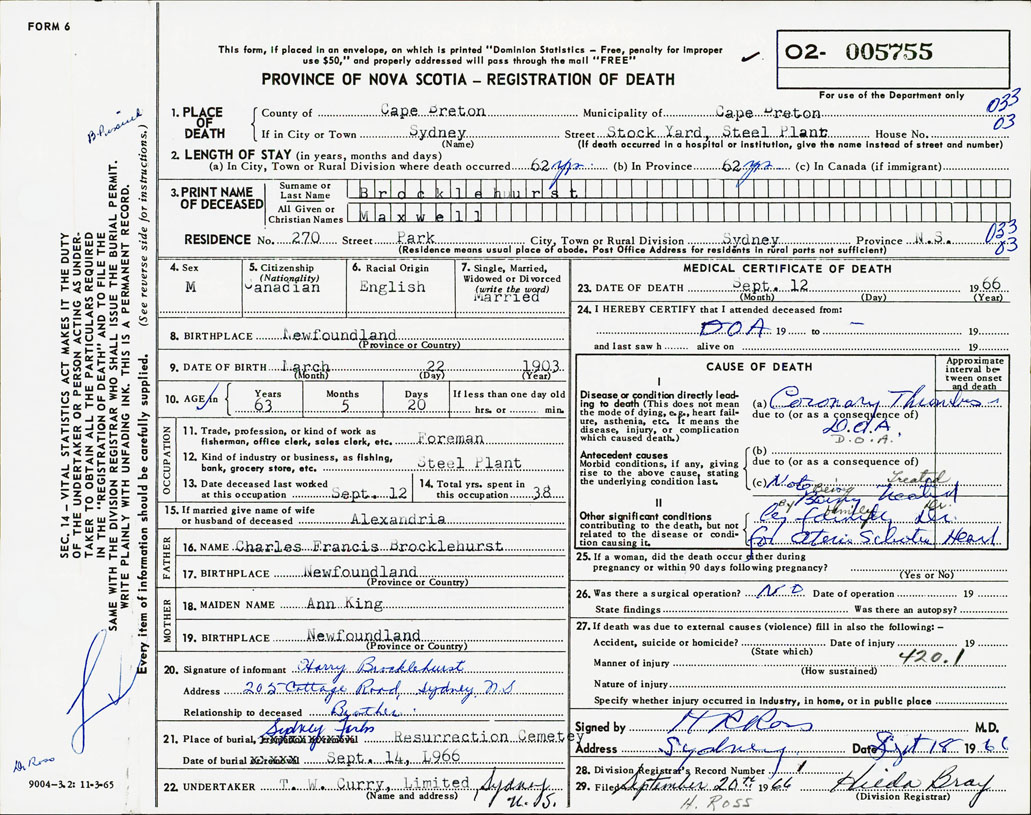 FORM 6
This form, if placed in an envelope, on which is printed "Dominion Statistics – Free, penalty for improper
use $50," and properly addressed will pass through the mail "FREE"
✓ O2- 005755
PROVINCE OF NOVA SCOTIA – REGISTRATION OF DEATH
For use of the Department only
033
03
1. PLACE OF DEATH
County of Cape Breton Municipality of Cape Breton
If in City or Town Sydney Street Stock Yard, Steel Plant House No.
(Name) (If death occurred in a hospital or institution, give the name instead of street and number)
2. LENGTH OF STAY (in years, months and days)
(a) In City, Town or Rural Division where death occurred 62 yrs (b) In Province 62 yrs (c) In Canada (if immigrant)
3. PRINT NAME OF DECEASED
Surname or Last Name Brocklehurst
All Given or Christian Names Maxwell
033
03
RESIDENCE No. 270 Street Park City, Town or Rural Division Sydney Province N.S.
(Residence means usual place of abode. Post Office Address for residents in rural parts not sufficient)
4. Sex
M
5. Citizenship
(Nationality)
Canadian
6. Racial Origin
English
7. Single, Married,
Widowed or Divorced
(write the word)
Married
8. BIRTHPLACE Newfoundland
(Province or Country)
9. DATE OF BIRTH March 22 1903
(Month) (Day) (Year)
10. AGE in Years Months Days If less than one day old
63 5 20 hrs. or min.
OCCUPATION
11. Trade, profession, or kind of work as
fisherman, office clerk, sales clerk, etc. Foreman
12. Kind of industry or business, as fishing,
bank, grocery store, etc. Steel Plant
13. Date deceased last worked
at this occupation Sept. 12
14. Total yrs. spent in
this occupation 38
15. If married give name of wife
or husband of deceased Alexandria
FATHER
16. NAME Charles Francis Brocklehurst
17. BIRTHPLACE Newfoundland
(Province or Country)
MOTHER
18. MAIDEN NAME Ann King
19. BIRTHPLACE Newfoundland
(Province or Country)
20. Signature of informant Harry Brocklehurst
Address 205 Cottage Road, Sydney N.S
Relationship to deceased Brother.
Sydney Forks
21. Place of burial, Resurrection Cemetey
Date of burial Sept. 14, 1966
22. UNDERTAKER T. W. Curry, Limited Sydney
(Name and address) N.S.
MEDICAL CERTIFICATE OF DEATH
23. DATE OF DEATH Sept. 12 1966
(Month) (Day) (Year)
24. I HEREBY CERTIFY that I attended deceased from:
D.O.A 19 to – 19
and last saw h alive on 19
CAUSE OF DEATH
Approximate
interval be-
tween onset
and death
I
Disease or condition directly lead-
ing to death (This does not mean
the mode of dying, e.g., heart fail-
ure, asthenia, etc. It means the
disease, injury, or complication
which caused death.)
(a) Coronary Thrombosis
due to (or as a consequence of)
D.O.A.
D.O.A.
Antecedent causes
Morbid conditions, if any, giving
rise to the above cause, stating
the underlying condition last.
(b)
due to (or as a consequence of)
(c) Note Being Treated
Being Treated
II
Other significant conditions
contributing to the death, but not
related to the disease or condi-
tion causing it.
By family Dr.
by family Dr.
for Heart
25. If a woman, did the death occur either during
pregnancy or within 90 days following pregnancy?
(Yes or No)
26. Was there a surgical operation? No Date of operation 19
State findings Was there an autopsy?
27. If death was due to external causes (violence) fill in also the following: –
Accident, suicide or homicide? Date of injury 19
(State which)
Manner of injury 420.1
(How sustained)
Nature of injury
Specify whether injury occurred in Industry, in home, or in public place
Signed by H R Ross M.D.
Address Sydney Date Sept 18 1966
28. Division Registrar's Record Number 1
29. Filed September 20th 1966 Hilda Bray
H. ROSS (Division Registrar)
SEC. 14 – VITAL STATISTICS ACT MAKES IT THE DUTY
OF THE UNDERTAKER OR PERSON ACTING AS UNDER-
TAKER TO OBTAIN ALL THE PARTICULARS REQUIRED
IN THE "REGISTRATION OF DEATH" AND TO FILE THE
SAME WITH THE DIVISION REGISTRAR WHO SHALL ISSUE THE BURIAL PERMIT.
WRITE PLAINLY WITH UNFADING INK. THIS IS A PERMANENT RECORD.
Every item of information should be carefully supplied. (See reverse side for instructions.)
Dr Ross
9004-3.2: 11-3-65